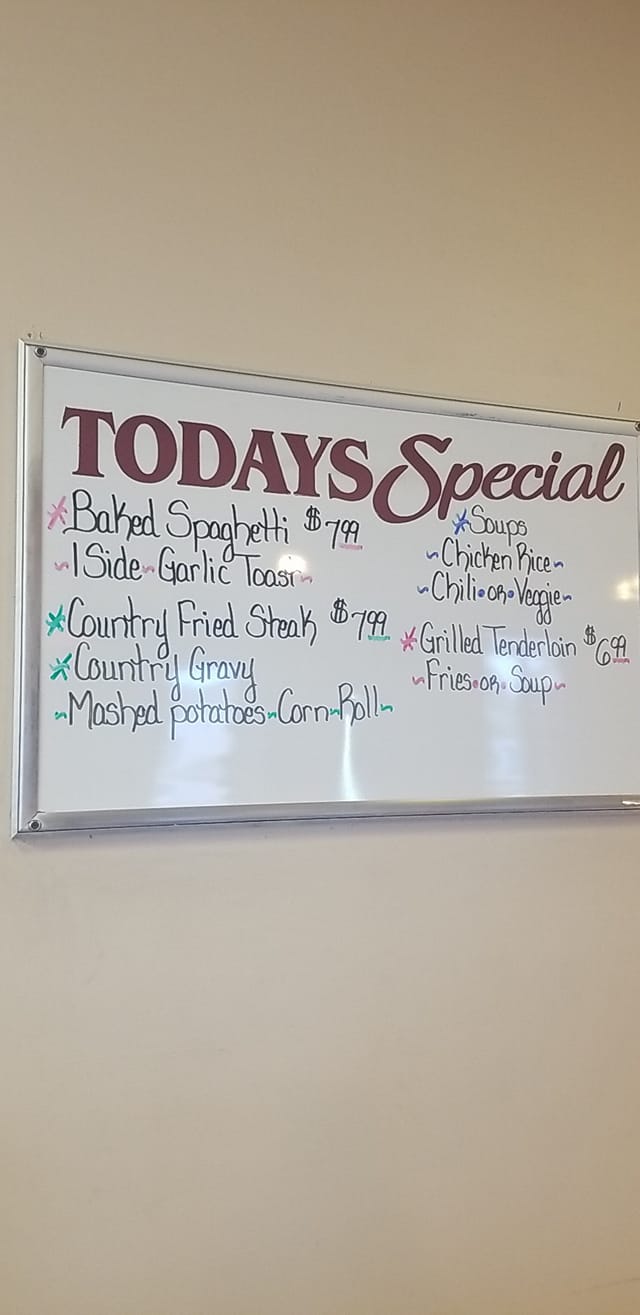 TODAYS Special
*Baked Spaghetti $7.99
~1 Side~Garlic Toast~
*Country Fried Steak $7.99
*Country Gravy
~Mashed potatoes~Corn~Roll~
*Soups
~Chicken Rice~
~Chili•or•Veggie~
*Grilled Tenderloin $6.99
~Fries•or•Soup~